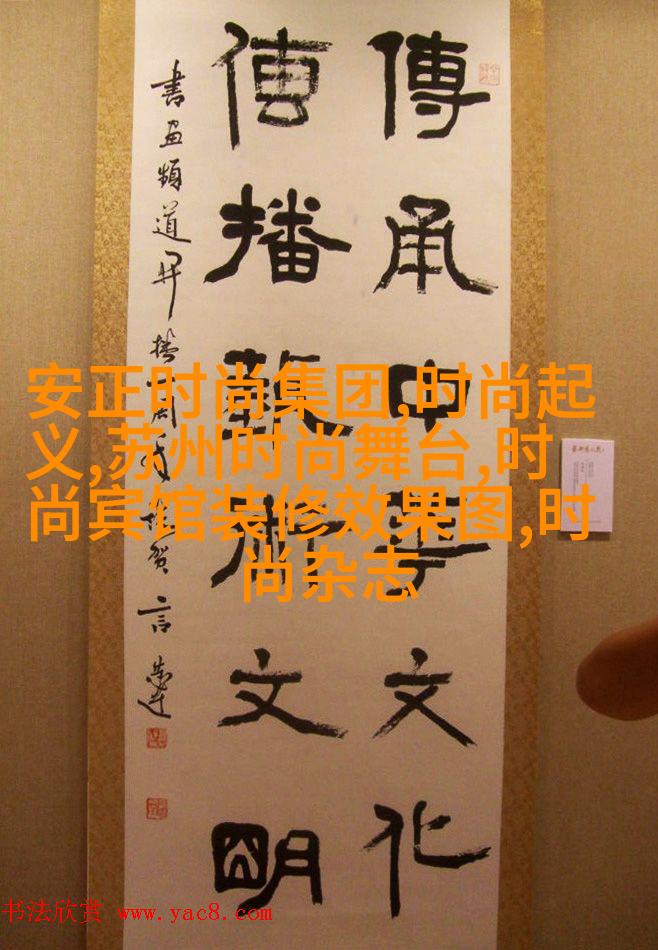 傳承中華文化
傳播藝術文明
書画頻道开播周年賀 言恭达
安正时尚集团,时尚起
义,苏州时尚舞台,时
尚宾馆装修效果图,时
尚杂志
书法欣赏 www.yac8.com